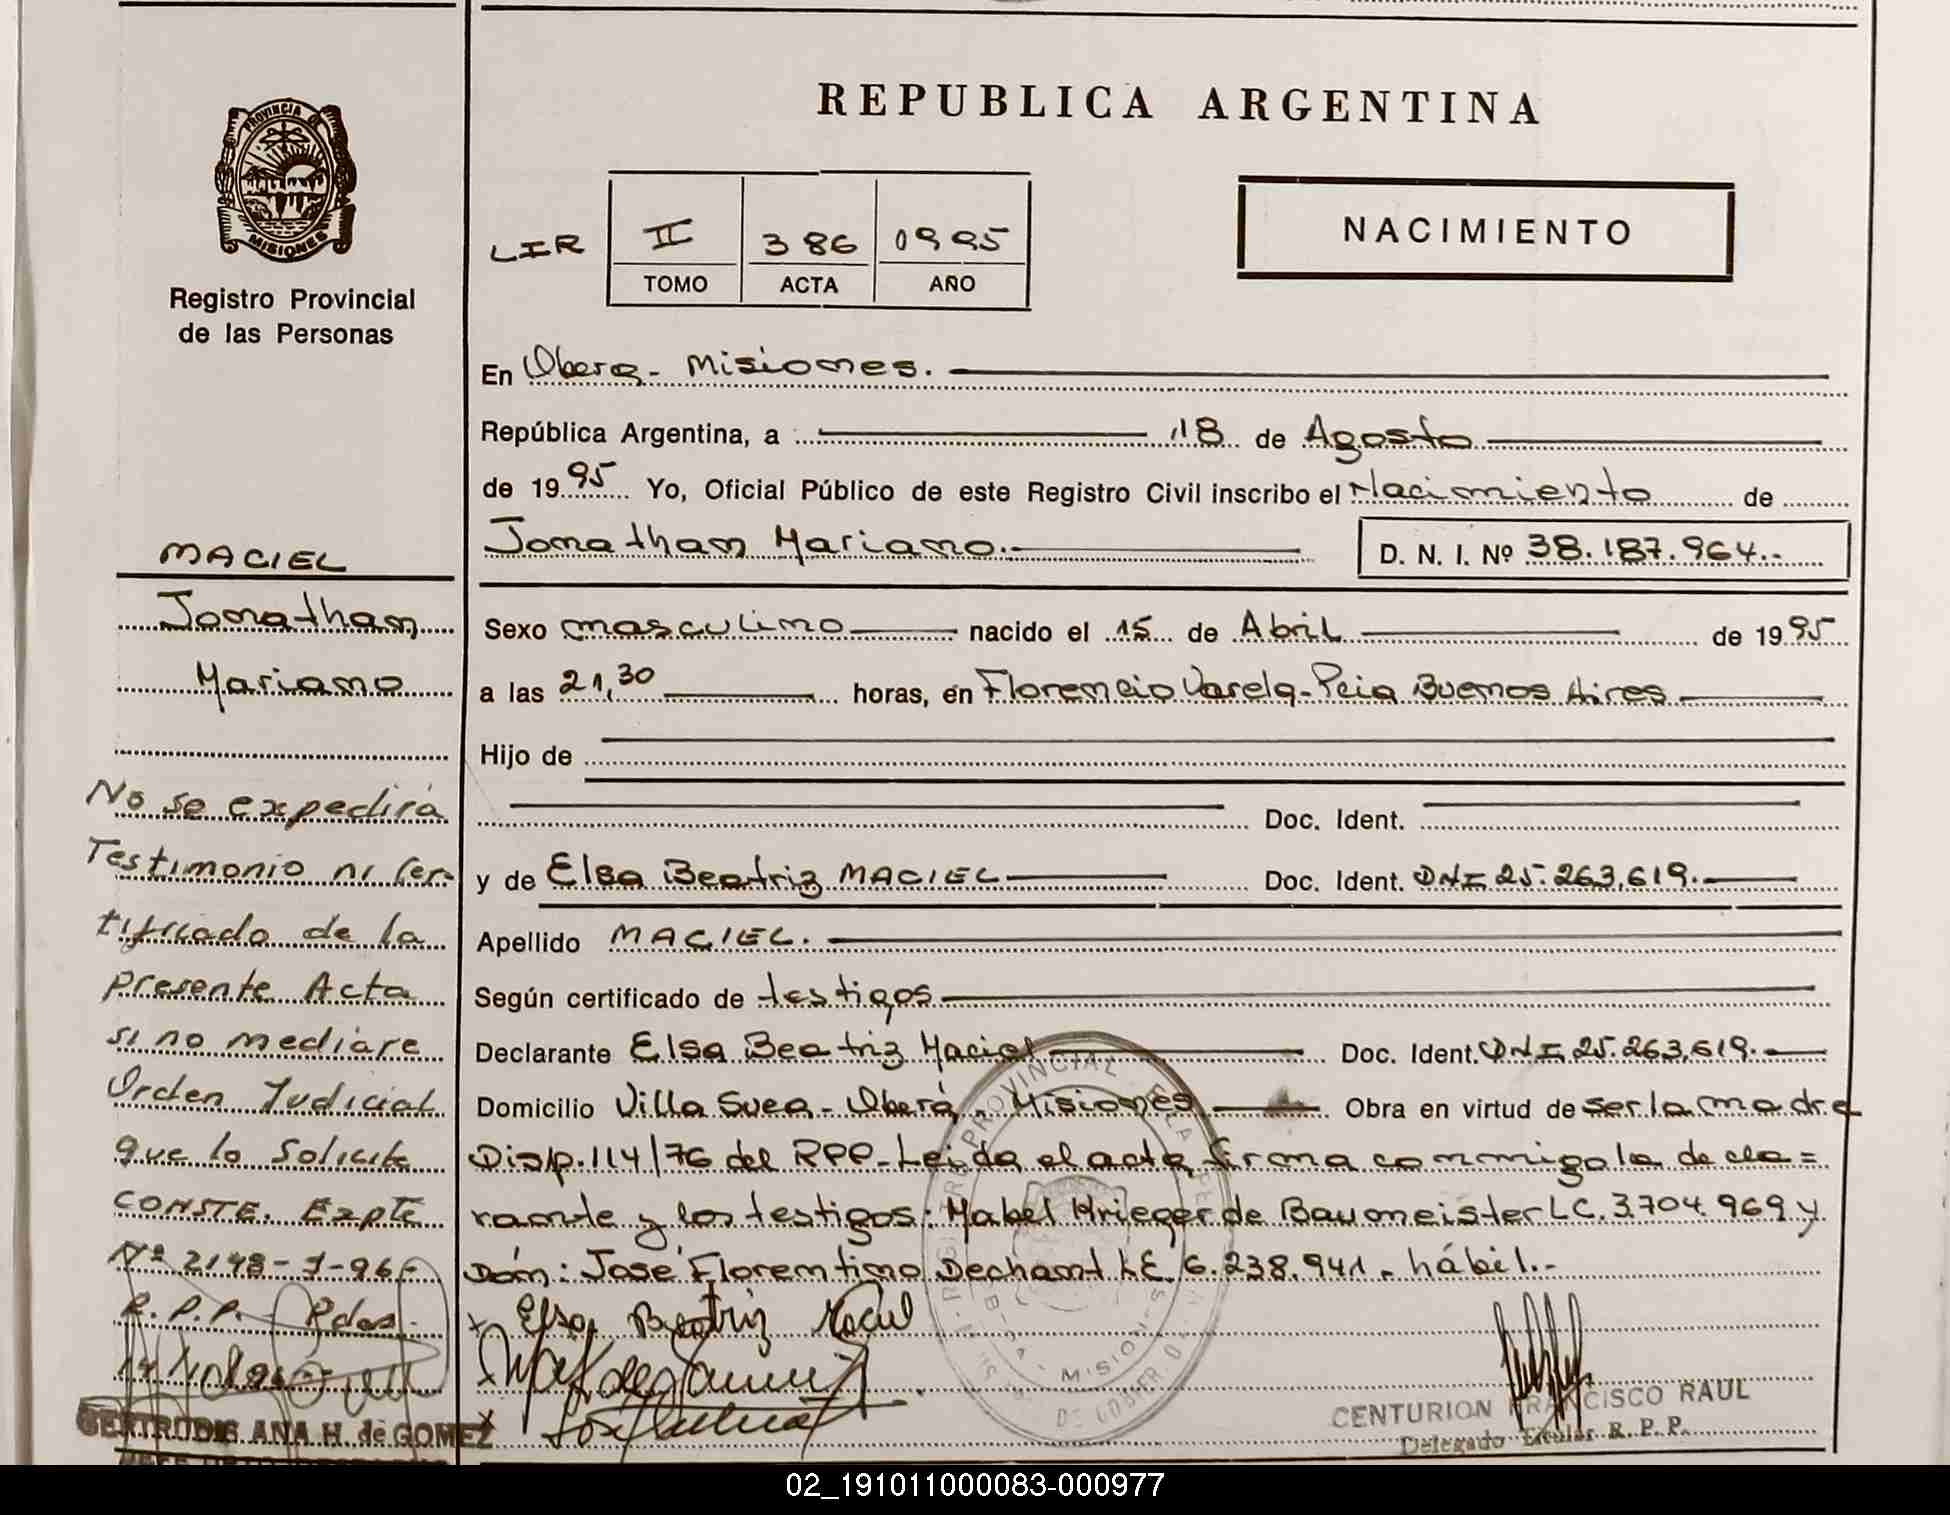 REPUBLICA ARGENTINA
PROVINCIA DE
MISIONES
Registro Provincial
de las Personas
LIR II 386 0995
TOMO ACTA AÑO
NACIMIENTO
En Obera - Misiones.
República Argentina, a 18 de Agosto
de 1995 Yo, Oficial Público de este Registro Civil inscribo el Nacimiento de
Jonathan Mariano. D. N. I. Nº 38.187.964.-
Sexo masculino nacido el 15 de Abril de 1995
a las 21,30 horas, en Florencio Varela - Pcia Buenos Aires
Hijo de
Doc. Ident.
y de Elsa Beatriz MACIEL Doc. Ident. DNI 25.263.619.
Apellido MACIEL.
Según certificado de testigos
Declarante Elsa Beatriz Maciel Doc. Ident. DNI 25.263.619.
Domicilio Villa Svea - Oberá - Misiones Obra en virtud de ser la madre
Disp. 114/76 del RPP - Leida el acta firma conmigo la decla=
rante y los testigos: Mabel Krieger de Baumeister LC. 3.704.969 y
Dón: José Florentino Dechamt LE. 6.238.941 - hábil.-
x Elsa Beatriz Maciel
CENTURION FRANCISCO RAUL
Delegado Titular R. P. P.
MACIEL
Jonathan
Mariano
No se expedirá
Testimonio ni Cer-
tificado de la
presente Acta
si no mediare
Orden Judicial
que lo Solicite
CONSTE. Expte
Nº 2148-J-96-
R.P.P. Pdas.
GERTRUDIS ANA H. de GOMEZ
MISIONES
02_191011000083-000977